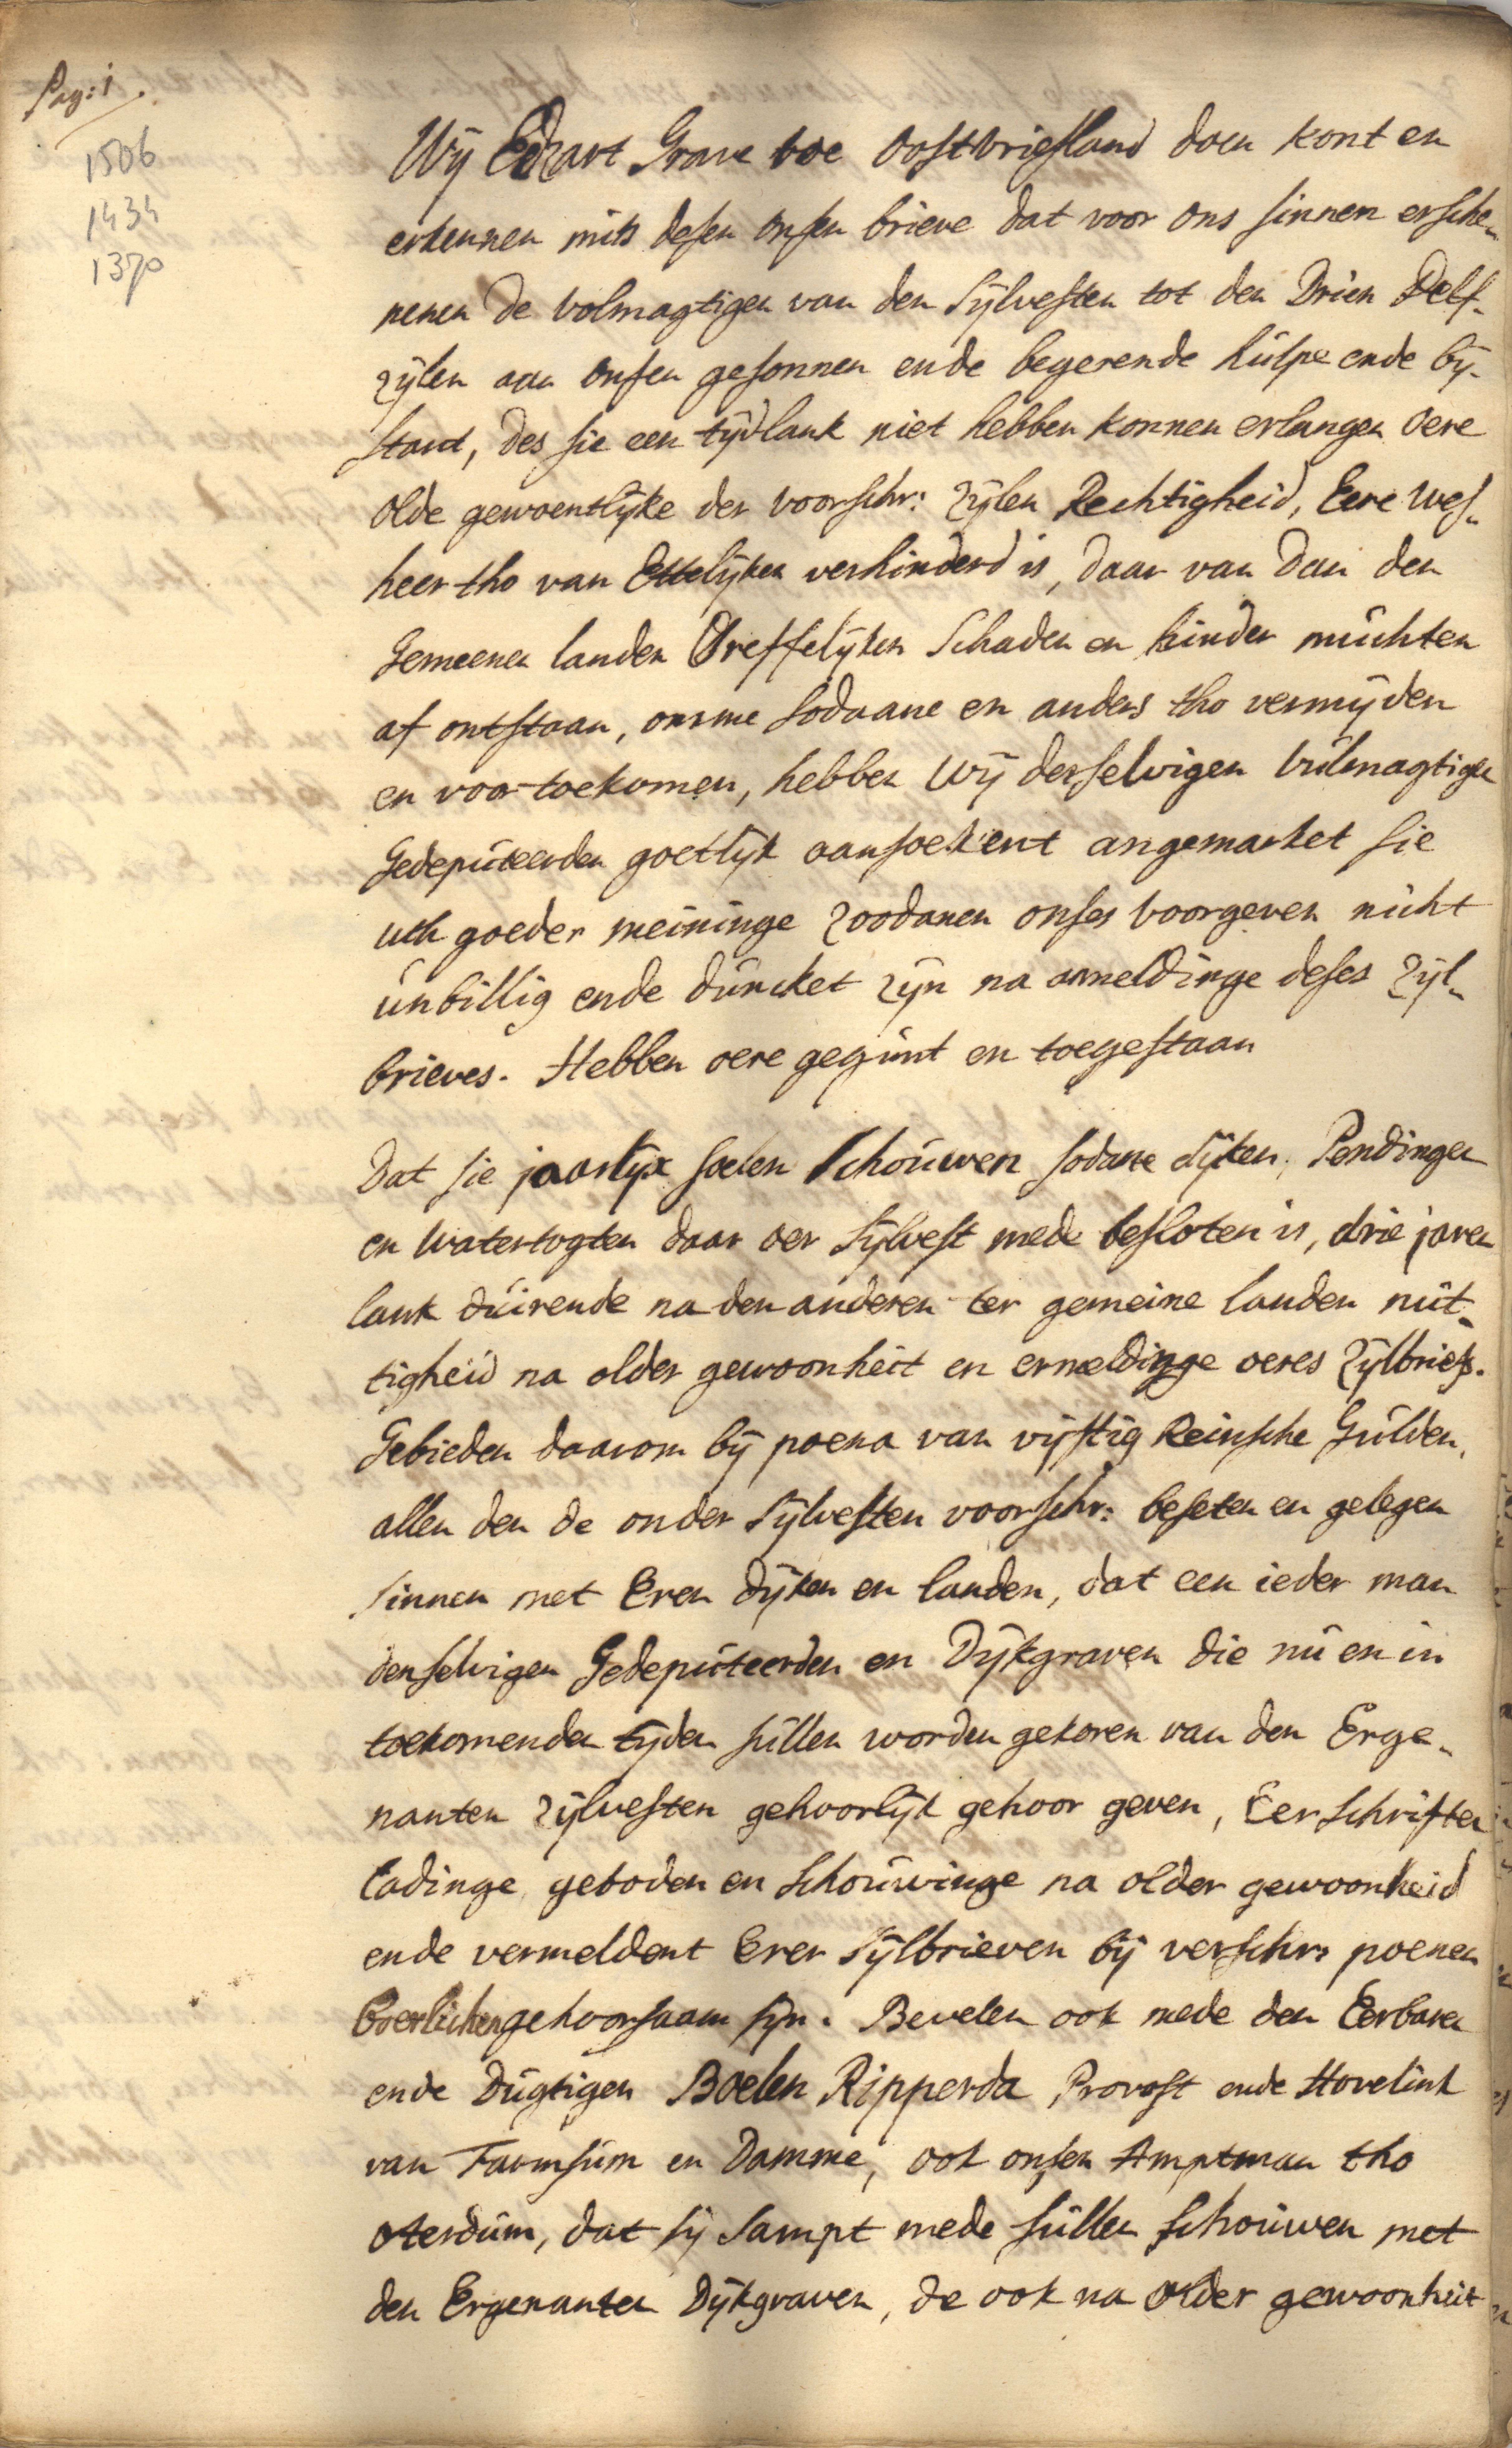 Pag: 1.
1506
1434
1370
Wij Edzart Grave toe Oostvriesland doen kont en
erkennen mits desen onsen brieve dat voor ons sinnen ersche„
nenen de volmagtigen van den Sijlvesten tot den Drien Delf-
zijlen aan onsen gesonnen ende begerende hulpe ende bij-
stant, des sie een tijdlank niet hebben konnen erlangen oere
olde gewoentlijke der voorschr: zijlen Rechtigheid, Eere wes„
heer tho van Ettelijken verhinderd is, daar van dan den
Gemeenen landen Dreffelijken Schaden en hinder muchten
af ontstaan, omme sodaane en anders tho vermijden
en voor toekomen, hebben wij derselvigen vulmagtigen
Gedeputeerden goetlijk aansoekent angemarket sie
uth goeder meininge zoodanen onses voorgeven nicht
unbillig ende duncket zijn na anmeldinge deses Zijl„
brieves. Hebben oere gegunt en toegestaan
Dat sie jaarlijx soelen schouwen sodane dijken, Pendingen
en watertogten daar oer Sijlvest mede besloten is, drie jaren
lank duirende na den anderen ter gemeine landen nut„
tigheid na older gewoonheit en ermeldinge oeres Zijlbriefs.
Gebieden daarom bij poena van vijftig Reinsche Gulden,
allen den de onder Sijlvesten voorschr: beseten en gelegen
sinnen met Eren dijken en landen, dat een ieder man
denselvigen Gedeputeerden en Dijkgraven die nu en in
toekomenden tijden sullen worden gekoren van den Erge„
nanten zijlvesten gehoorlijk gehoor geven, Eer schriften
ladinge, geboden en schouwinge na older gewoonheid
ende vermeldent Erer Sijlbrieven bij verschr: poenen
boerlichen gehoorsaam sijn. Bevelen ook mede den Eerbaren
ende Dugtigen Boelen Ripperda, Provost ende Hovelink
van Farmsum en Damme, ook onsen Amptman tho
oterdum, dat sij sampt mede sullen schouwen met
den Ergenanten Dijkgraven, de ook na older gewoonheit